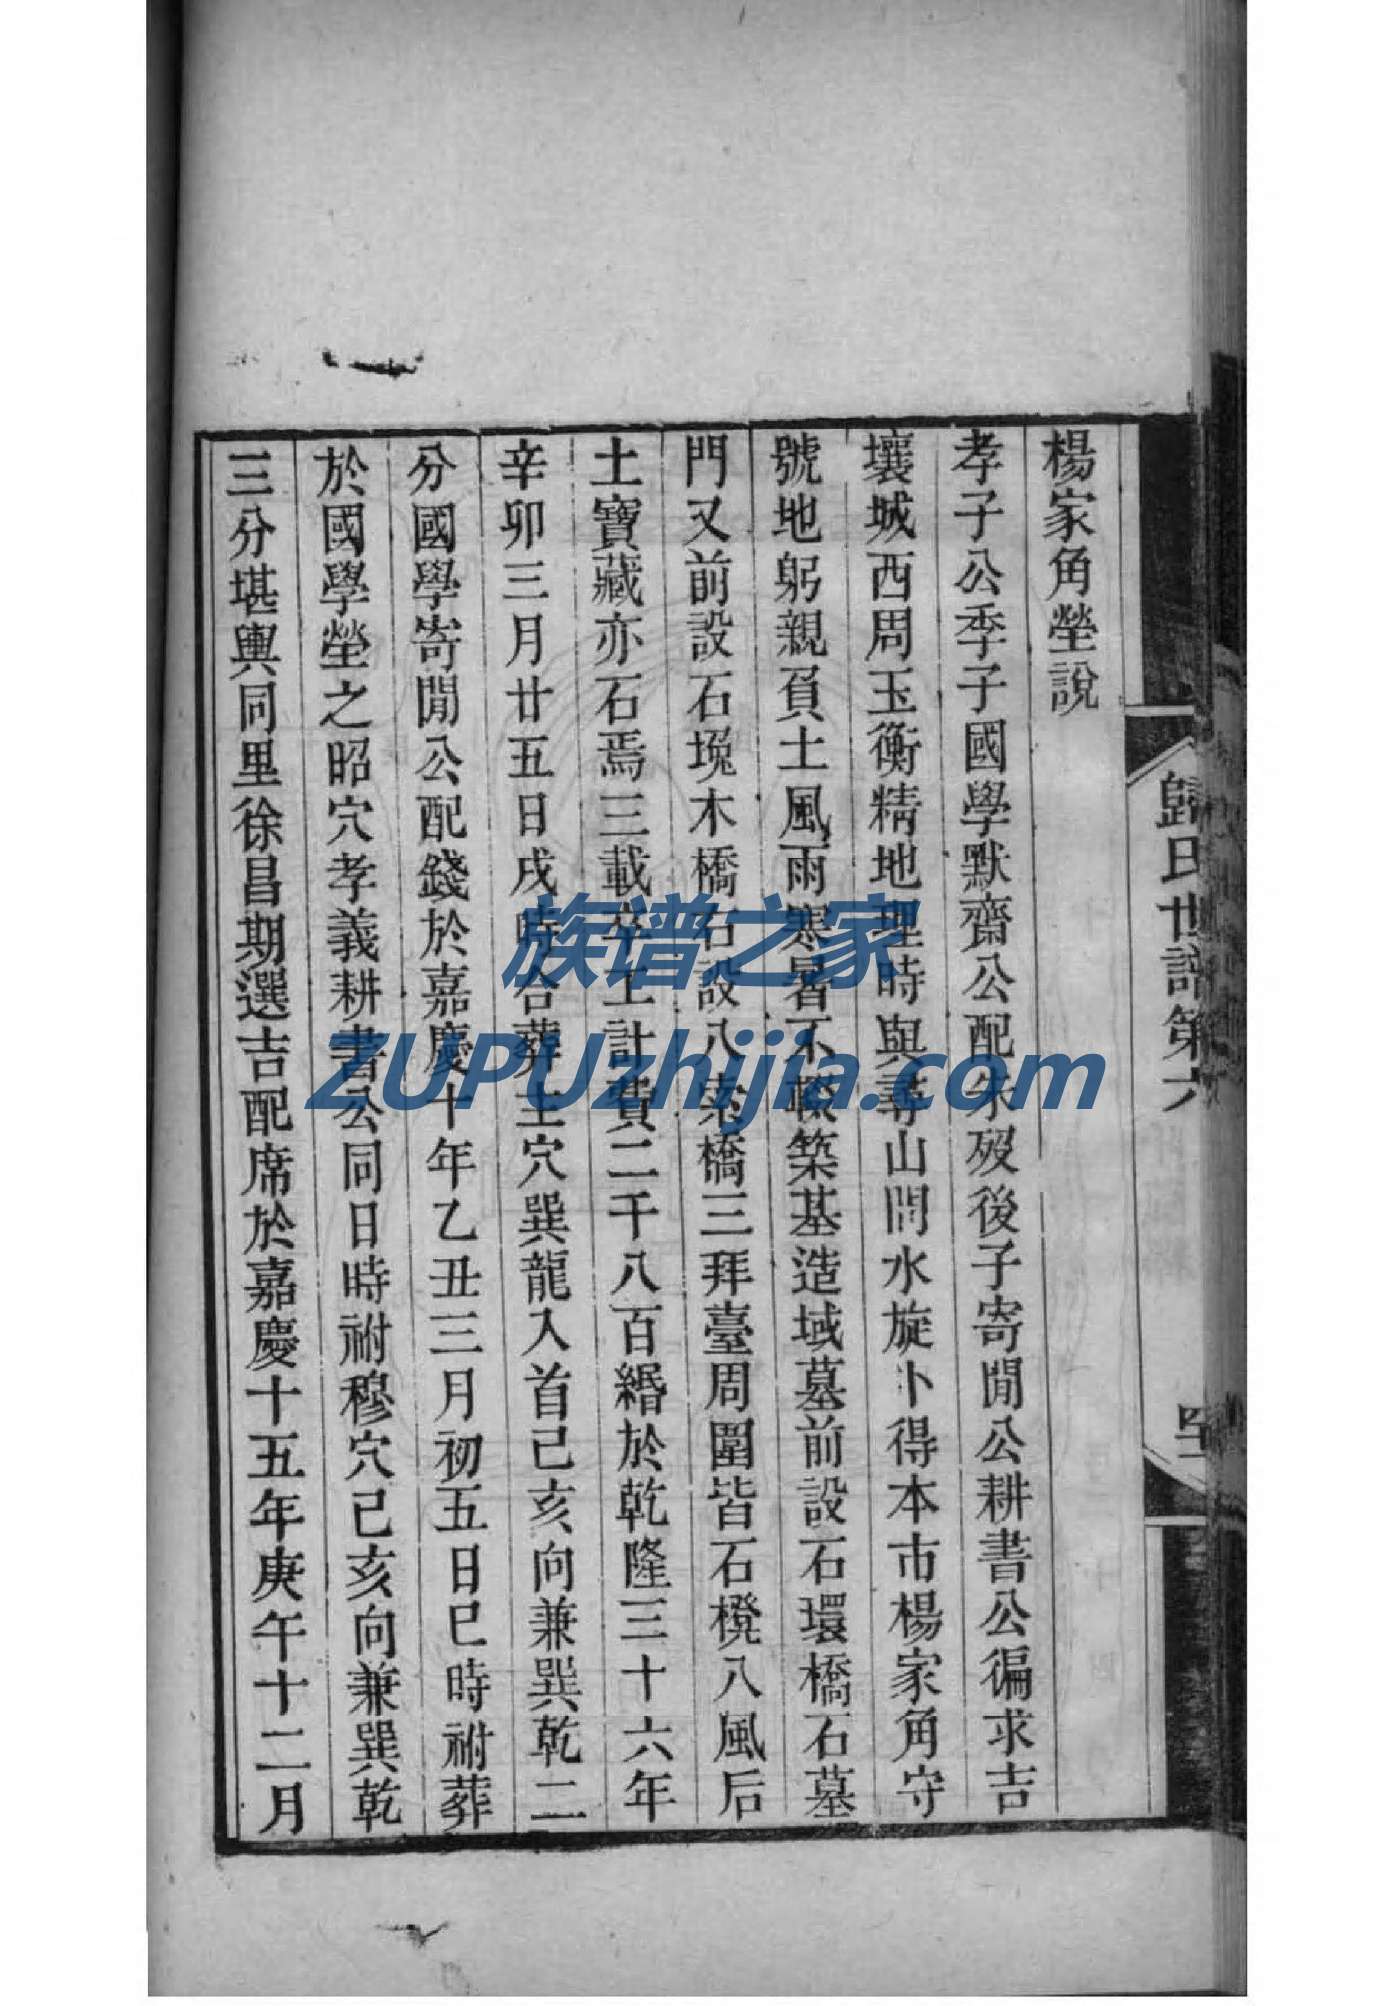 楊家角塋說
孝子公季子國學默齋公配朱歿後子寄閒公耕書公徧求吉
壤城西周玉衡精地理時與尋山問水旋卜得本市楊家角守
號地躬親負土風雨寒暑不輟築基造域墓前設石環橋石墓
門又前設石塊木橋右設八索橋三拜臺周圍皆石櫈八風后
土寶藏亦石焉三載卒工計費二千八百緡於乾隆三十六年
辛卯三月廿五日戌時合葬主穴巽龍入首己亥向兼巽乾二
分國學寄閒公配錢於嘉慶十年乙丑三月初五日巳時祔葬
於國學塋之昭穴孝義耕書公同日時祔穆穴己亥向兼巽乾
三分堪輿同里徐昌期選吉配席於嘉慶十五年庚午十二月
歸氏世譜第六
族谱之家
ZUPUzhijia.com